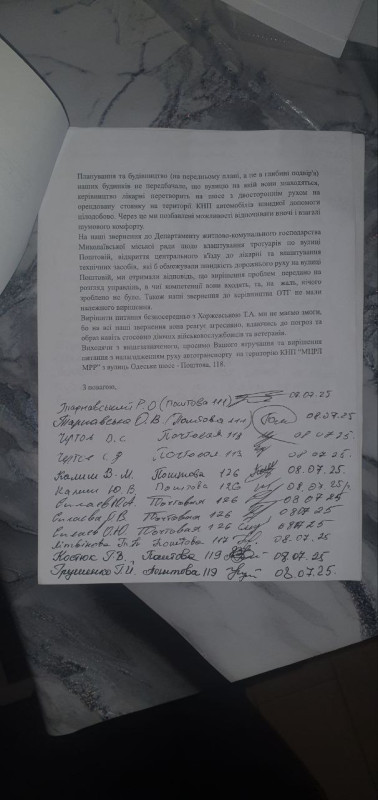 Планування та будівництво (на передньому плані, а не в глибині подвір'я)
наших будинків не передбачало, що вулицю на якій вони знаходяться,
керівництво лікарні перетворить на шосе з двостороннім рухом на
орендовану стоянку на території КНП автомобілів швидкої допомоги
цілодобово. Через це ми позбавлені можливості відпочивати вночі і взагалі
шумового комфорту.
На наші звернення до Департаменту житлово-комунального господарства
Миколаївської міської ради щодо влаштування тротуарів по вулиці
Поштовій, відкриття центрального в'їзду до лікарні та влаштування
технічних засобів, які б обмежували швидкість дорожнього руху на вулиці
Поштовій, ми отримали відповідь, що вирішення проблем передано на
розгляд управлінь, в чиї компетенції вони входять, та, на жаль, нічого
зроблено не було. Також наші звернення до керівництва ОТГ не мали
належного вирішення.
Вирішити питання безпосередньо з Хоржевською Т.А. ми не маємо змоги,
бо на всі наші звернення вона реагує агресивно, вдаючись до погроз та
образ навіть стосовно діючих військовослужбовців та ветеранів.
Виходячи з вищезазначеного, просимо Вашого втручання та вирішення
питання з налагодженням руху автотранспорту на територію КНП "МЦРЛ
МРР" з вулиць Одеське шосе - Поштова, 118.
З повагою,
Тарнавський Р.О (Поштова 111) 08.07.25
Тарнавська О.В (Поштова 111) 08.07.25
В.С. Почтовая 113 08.07.25.
С.Я Почтовая 113 08.07.25.
Калиш В.М. Поштова 126 08.07.25.
Калиш Ю.В. Поштова 126 08.07.25
Ю.А. Почтовая 126 08.07.25
Я.В. Почтовая 126 08.07.25
О.Ю. Почтовая 126 08.07.25
Літвінова Поштова 117 08.07.25
Костюк Г.В, Поштова 119 08.07.25
Грушенко Г.И, Поштова 119 08.07.25.